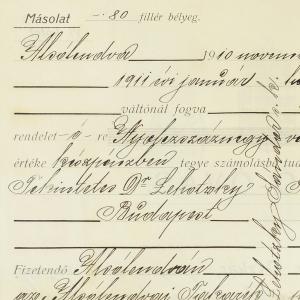 Másolat —.80 fillér bélyeg.
Alsólendva 1910 novem
1911 évi január
váltónál fogva
rendelet-é-re Nyolczszáznegy
értéke készpénzben tegye számolásba tud
Tekintetes Dr Lehotzky
Budapest
Fizetendő Alsólendván
az Alsólendvai Takarék
Lehotzky Sándor s. k.